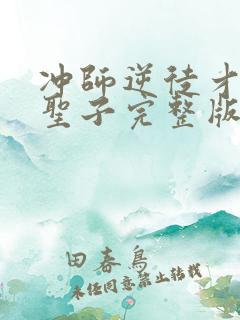 冲師逆徒才
聖子完整版
田春鳥
未经同意禁止转载